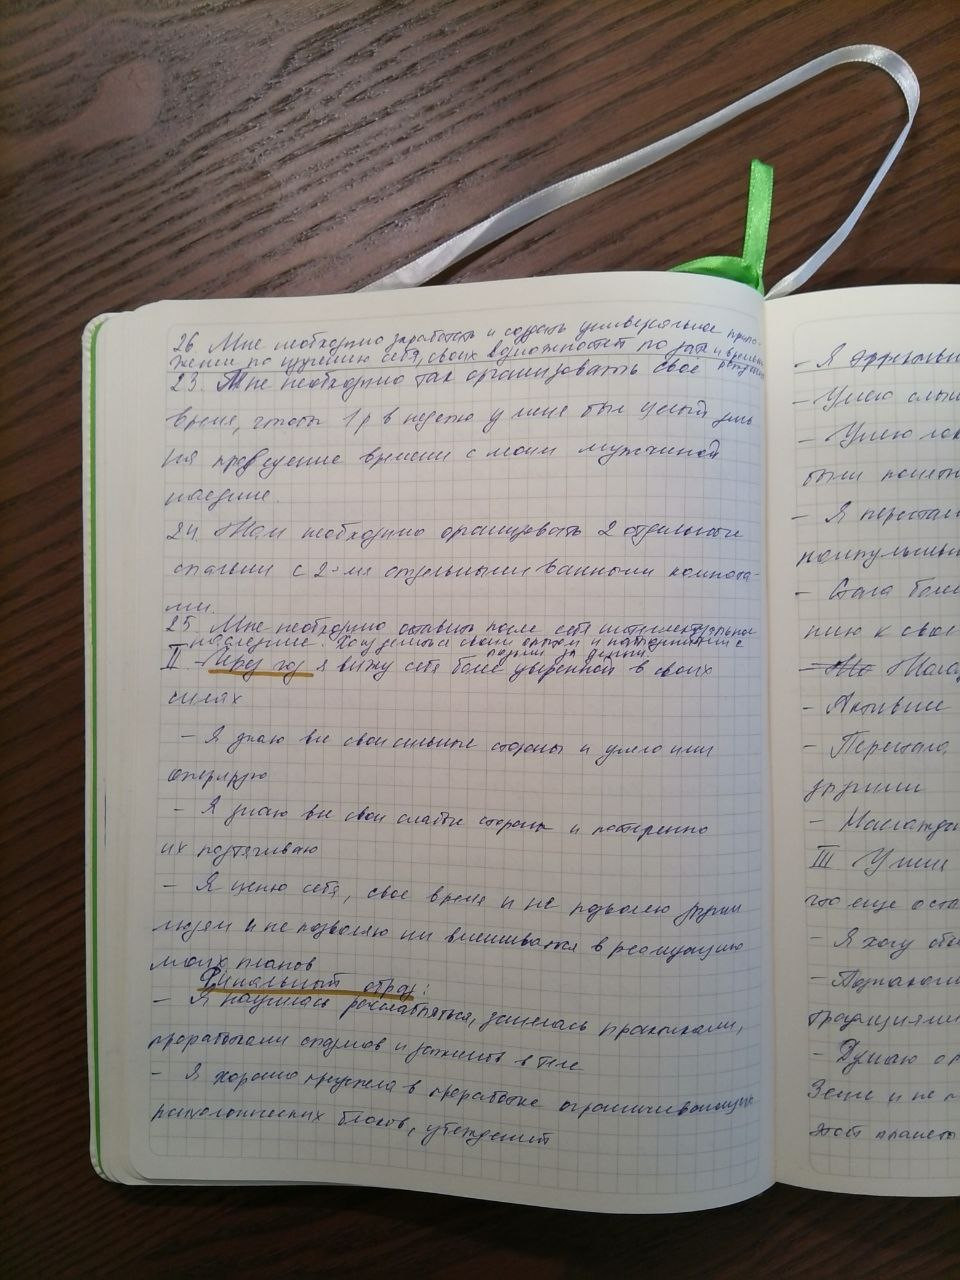 26 Мне необходимо заработать и создать универсальное прило-
жение по изучению себя, своих возможностей по дате и времени
23. Мне необходимо так организовать свое
время, чтобы 1 р в неделю у меня был целый день
на проведение времени с моим мужчиной
наедине.
24. Нам необходимо организовать 2 отдельные
спальни с 2-мя отдельными ванными комната-
ми.
25. Мне необходимо оставить после себя интеллектуальное
наследние. Хочу делиться своим опытом и
людьми за деньги.
II - Через год я вижу себя более уверенной в своих
силах
- Я знаю все свои сильные стороны и умело ими
оперирую
- Я знаю все свои слабые стороны и потихеньку
их подтягиваю
- Я ценю себя, свое время и не позволяю другим
людям и не позволяю им вмешиваться в реализацию
моих планов
Финальный образ:
- Я научилась расслабляться, занялась практиками,
проработками спазмов и зажимов в теле
- Я хорошо преуспела в проработке ограничивающих
психологических блоков, убеждений
- Я эффективн
- Умею слыш
- Умею
были понятн
- Я перестал
- Стала более
нию к свое
- Активнее
- Перестала
другими
- Наслажда
III У меня
что еще оста
- Я хочу
- Познаком
традициями
- Думаю
Земле и не
этой планеты